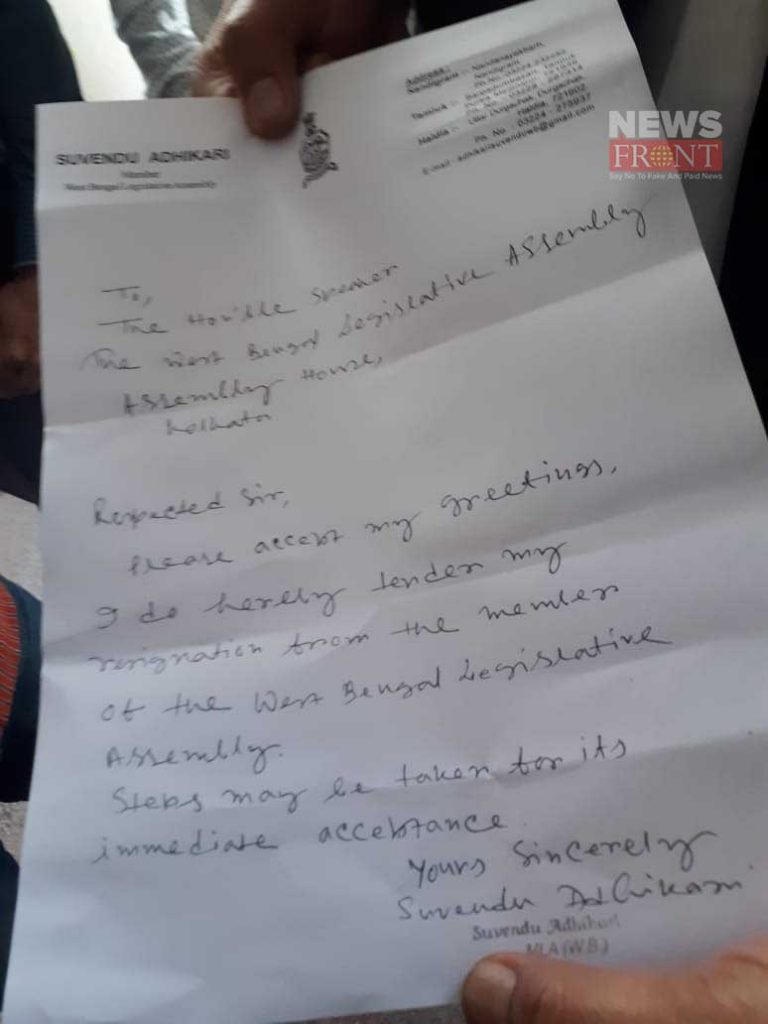 SUVENDU ADHIKARI
Member
West Bengal Legislative Assembly
Address :
Nandigram :- Nandanayakbar,
Nandigram
Tamluk :-
Haldia :-
Haldia, 721602
Ph. No. 03224 - 270937
E-mail : adhikarisuvenduwb@gmail.com
NEWS
FRONT
Say No To Fake And Paid News
To,
The Hon'ble Speaker
The West Bengal Legislative Assembly
Assembly House,
Kolkata
Respected Sir,
Please accept my greetings,
I do hereby tender my
resignation from the member
of the West Bengal Legislative
Assembly.
Steps may be taken for its
immediate acceptance.
Yours Sincerely
Suvendu Adhikari
Suvendu Adhikari
MLA (W.B.)